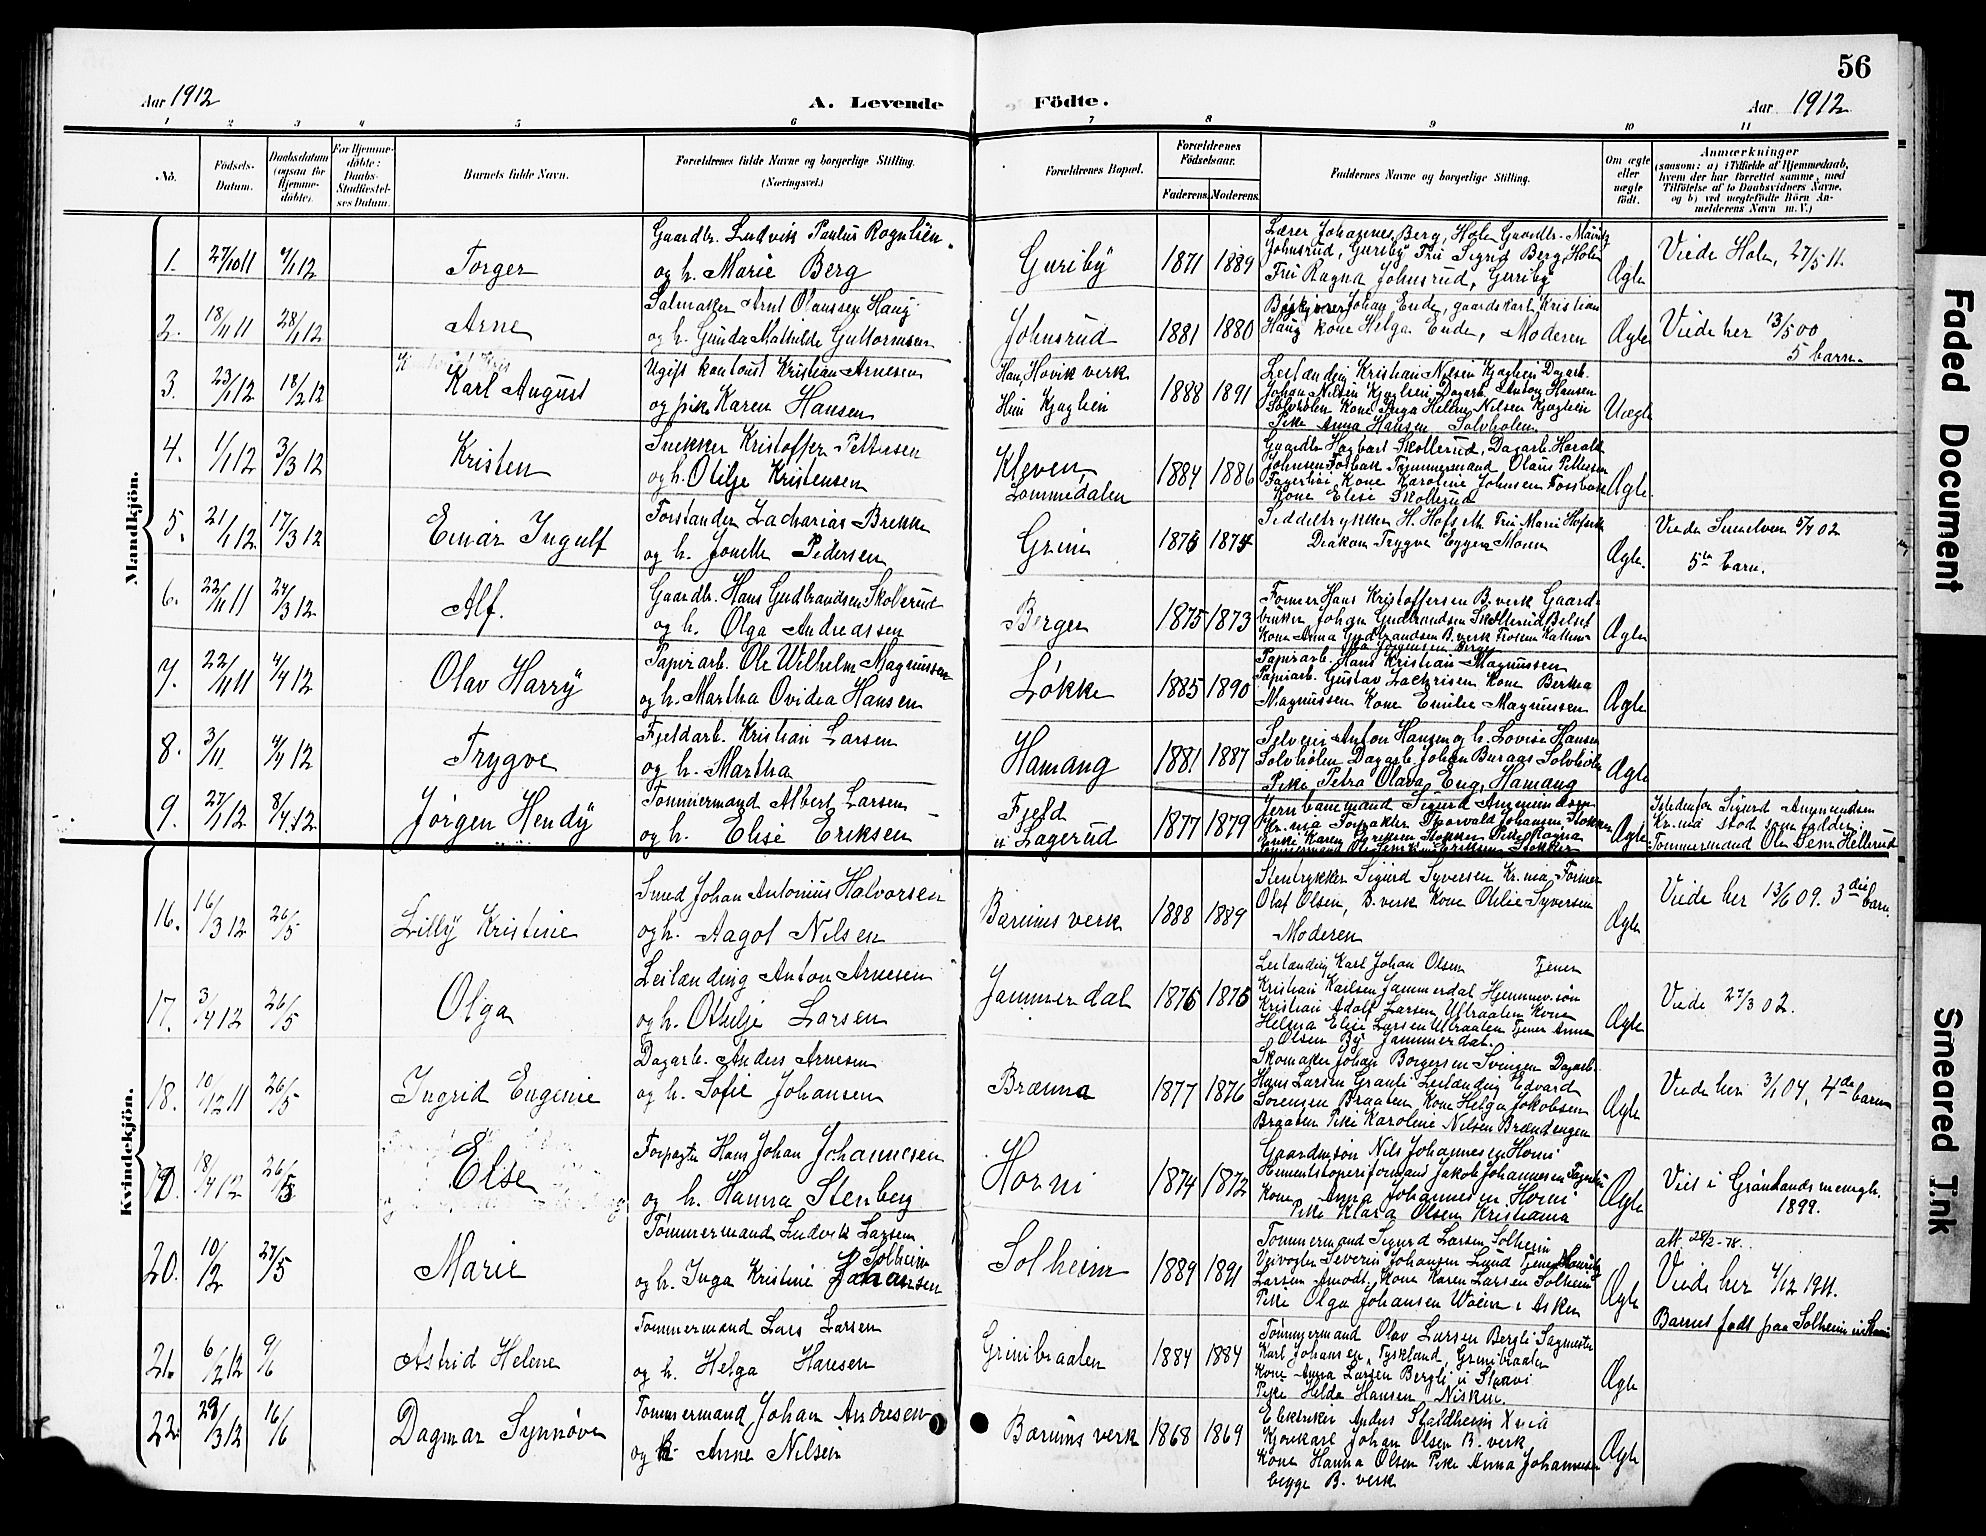 56
Aar 1912
A. Levende
Födte.
Aar 1912
1 2 3 4 5 6 7 8 9 10 11
No.
Födsels-Datum.
Daabsdatum (ogsaa for Hjemmedöbte).
For Hjemmedöbte: Daabs-Stadfæstelses Datum.
Barnets fulde Navn.
Forældrenes fulde Navne og borgerlige Stilling. (Næringsvei.)
Forældrenes Bopæl.
Forældrenes Födselsaar.
Faderens. Moderens.
Faddernes Navne og borgerlige Stilling.
Om ægte eller uægte födt.
Anmærkninger
(saasom: a) i Tilfælde af Hjemmedaab, hvem der har forrettet samme, med Tilföielse af to Daabsvidners Navne, og b) ved uægtefödte Börn Anmelderens Navn m. V.)
Mandkjön.
1. 27/10 11 7/1 12 Torger
Gaardbr. Ludvik Paulus Rognlien
og h. Marie Berg
Guriby 1871 1889
Lærer Johannes Berg, Holen Gaardbr. Mauritz
Johnsrud, Guriby Fru Sigrid Berg, Holen
Fru Ragna Johnsrud, Guriby
Ægte
Viede Hole, 27/5 11.
2. 18/11 11 28/1 12 Arne
Salmaker Arnt Olaussen Haug
og h. Gunda Mathilde Guttormsen
Johnsrud 1881 1880
Johan Ende, gaardskarl Kristian
Haug kone Helga Ende, Moderen
Ægte
Viede her 13/5 00
5 barn.
3. 23/1 12 18/2 12 Karl August
Ugift kontorist Kristian Arnesen
og pike Karen Hansen
Han, Hövik verk
Hun Kjaglien
1888 1891
Leilænding Kristian Nilsen Kjaglien Dagarb.
Johan Nilsen Kjaglien Dagarb. Anton Hansen
Solvholen Kone Inga Helene Nilsen Kjaglien
Pike Anna Hansen Solvholen
Uægte
4. 1/1 12 3/3 12 Kristen
Snekker Kristoffer Pettersen
og h. Otilje Kristensen
Kleven
Lommedalen
1884 1886
Gaardbr. Hagbart Skollerud, Dagarb. Harald
Johnsen Fosbak Tømmermand Olaus Pettersen
Fagerliöi, Kone Karoline Johnsen Fossbak
Kone Elise Skollerud
Ægte.
5. 21/1 12 17/3 12 Einar Ingulf
Forstander Zacharias Brekke
og h. Jonette Pedersen
Grini 1873 1874
Seddeltrykker H. Hofseth Fru Marri Hofseth
Diakon Trygve Eggen Moren
Ægte.
Viede Sunelven 5/7 02
5te barn.
6. 22/11 11 24/3 12 Alf.
Gaardbr. Hans Gudbrandsen Skollerud
og h. Olga Andreassen
Berger 1875 1873
Former Hans Kristoffersen B. verk Gaard-
bruker Johan Gudbrandsen Skollerud Belset
Kone Anna Gudbrandsen B. verk Frøken
Jørgensen Berger
Ægte
7. 22/11 11 4/4 12 Olav Harry
Papirarb. Ole Wilhelm Magnussen
og h. Martha Ovidea Hansen
Løkke 1885 1890
Papirarb. Hans Kristian Magnussen
Papirarb. Gustav Zachrisen Kone Bertha
Magnussen Kone Emilie Magnussen
Ægte
8. 3/11. 4/4 12 Trygve
Fjeldarb. Kristian Larsen
og h. Martha
Hamang 1881 1887
Selveier Anton Hansen og h. Lovise Hansen
Solvholen Dagarb. Johan Buraas Solvholen
Pike Petra Olava Eng, Hamang
Ægte
9. 27/1 12 8/4 12 Jørgen Hendy
Tømmermand Albert Larsen
og h. Elise Eriksen
Fjeld
u/ Lagerud
1877 1879
Jernbanemand Sigurd Anmundsen
Kr.nia Forpakter Thorvald Johansen Stokker
Enke Karen Eriksen Stokken Pike Ragna
Eriksen Stokker
Ægte
Istedenfor Sigurd Anmundsen
Kr.nia stod som fadder:
Tømmermand Ole Hellerud
Kvindekjön.
16. 16/3 12 26/5 Lilly Kristine
Smed Johan Antonius Halvorsen
og h. Aagot Nilsen
Bærums verk 1888 1889
Stentrykker Sigurd Syversen Kr.nia, Former
Olaf Olsen, B. verk Kone Otilie Syversen
Moderen
Ægte
Viede her 13/6 09. 3die barn.
17. 3/4 12 26/5 Olga
Leilænding Anton Arnesen
og h. Othilje Larsen
Jammerdal 1876 1875
Leilænding Karl Johan Olsen Tjener
Kristian Karlsen Jammerdal Hjemmev. søn
Kristian Adolf Larsen Ulbraaten Kone
Helma Elise Larsen Ulbraaten Tjener Anna
Olsen By Jammerdal.
Ægte
Viede 27/3 02.
18. 10/12 11 26/5 Ingrid Eugenie
Dagarb. Anders Arnesen
og h. Sofie Johansen
Brænna 1877 1876
Skomaker Johan Borgersen Svingen Dagarb.
Hans Larsen Granli Leilænding Edvard
Sørensen Braaten Kone Helga Jakobsen
Braaten Pike Karoline Nilsen Brændengen
Ægte
Viede her 3/1 04, 4de barn
19. 18/4 12 26/5 Else
Forpagter Hans Johan Johannesen
og h. Hanna Stenberg
Horni 1874 1872
Gaardmsøn Nils Johannesen Horni
Cementstøperiformand Jakob Johannesen
Kone Anna Johannesen Horni
Pike Klara Olsen Kristiania
Ægte
Viet i Grønlands menigh.
1899.
20. 10/2 27/5 Marie
Tømmermand Ludvik Larsen
Solheim
og h. Inga Kristine Johansen
Solheim 1889 1891
Tømmermand Sigurd Larsen Solheim
Veivogter Severin Johansen Lund Tjener Mauritz
Larsen Amodt, Kone Karen Larsen Solheim
Pike Olga Johansen Woien i Asker
Ægte
att. 28/2-78.
Viede her 4/12 1911.
Barnet født paa Solheim
21. 6/2 12 9/6 Astrid Helene
Tømmermand Lars Larsen
og h. Helga Hansen
Grinibraaten 1884 1884
Tømmermand Olav Larsen Bergli Sagmester
Karl Johansen, Tyskland, Grinibraaten
Kone Anna Larsen Bergli u/ Staavi
Pike Hilda Hansen Nisken
Ægte
22. 29/3 12 16/6 Dagmar Synnøve
Tømmermand Johan Andresen
og h. Anne Nilsen
Bærums verk 1868 1869
Elektriker Anders Staldheim Xnia
Kjørekarl Johan Olsen B. verk
Kone Hanna Olsen Pike Anna Johannesen
begge B. verk
Ægte
Faded Document
Smeared Ink